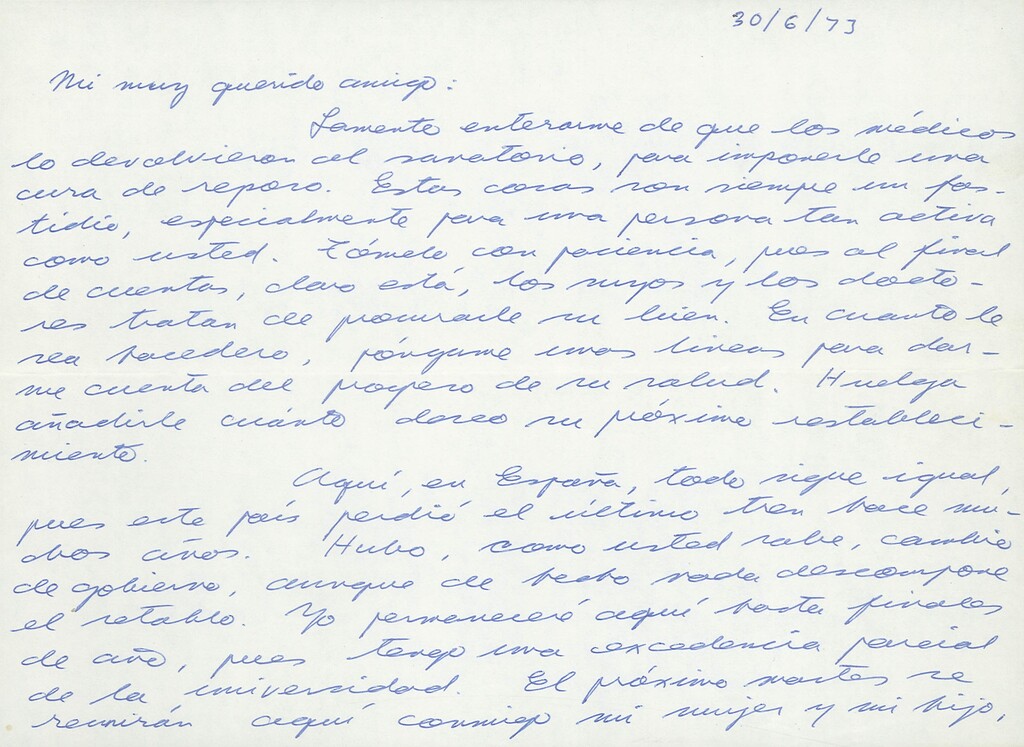 30/6/73
Mi muy querido amigo:
Lamento enterarme de que los médicos
lo devolvieron al sanatorio, para imponerle una
cura de reposo. Estas cosas son siempre un fas-
tidio, especialmente para una persona tan activa
como usted. Tómelo con paciencia, pues al final
de cuentas, claro está, los suyos y los docto-
res tratan de procurarle su bien. En cuanto le
sea hacedero, póngame unas líneas para dar-
me cuenta del progreso de su salud. Huelga
añadirle cuánto deseo su próximo restableci-
miento.
Aquí, en España, todo sigue igual,
pues este país perdió el último tren hace mu-
chos años. Hubo, como usted sabe, cambio
de gobierno, aunque de hecho nada descompone
el retablo. Yo permaneceré aquí hasta finales
de año, pues tengo una excedencia parcial
de la universidad. El próximo martes se
reunirán aquí conmigo mi mujer y mi hijo,